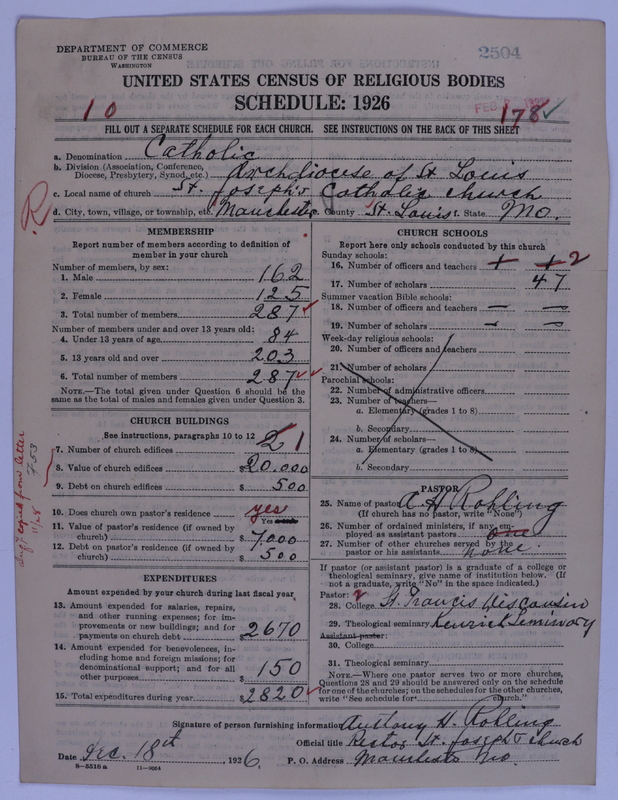 DEPARTMENT OF COMMERCE
BUREAU OF THE CENSUS
WASHINGTON
2504
UNITED STATES CENSUS OF RELIGIOUS BODIES
SCHEDULE: 1926
10
FEB
178 ✓
FILL OUT A SEPARATE SCHEDULE FOR EACH CHURCH. SEE INSTRUCTIONS ON THE BACK OF THIS SHEET
a. Denomination Catholic
b. Division (Association, Conference, Diocese, Presbytery, Synod, etc.) Archdiocese of St Louis
c. Local name of church St. Joseph's Catholic church
d. City, town, village, or township, etc. Manchester e. County St. Louis f. State Mo.
R
MEMBERSHIP
Report number of members according to definition of
member in your church
Number of members, by sex:
1. Male 162
2. Female 125
3. Total number of members 287 ✓
Number of members under and over 13 years old:
4. Under 13 years of age 84
5. 13 years old and over 203
6. Total number of members 287 ✓✓
NOTE.—The total given under Question 6 should be the
same as the total of males and females given under Question 3.
CHURCH BUILDINGS
See instructions, paragraphs 10 to 12
7. Number of church edifices 2 1
8. Value of church edifices $20.000
9. Debt on church edifices $ 500
10. Does church own pastor's residence yes
Yes
11. Value of pastor's residence (if owned by
church) $ 7,000
12. Debt on pastor's residence (if owned by
church) $ 500
from letter
753
11/28
EXPENDITURES
Amount expended by your church during last fiscal year
13. Amount expended for salaries, repairs,
and other running expenses; for im-
provements or new buildings; and for
payments on church debt 2670
14. Amount expended for benevolences, in-
cluding home and foreign missions; for
denominational support; and for all
other purposes $ 150
15. Total expenditures during year $ 2820 ✓
CHURCH SCHOOLS
Report here only schools conducted by this church
Sunday schools:
16. Number of officers and teachers + + 2
17. Number of scholars 47
Summer vacation Bible schools:
18. Number of officers and teachers — —
19. Number of scholars — —
Week-day religious schools:
20. Number of officers and teachers
21. Number of scholars
Parochial schools:
22. Number of administrative officers
23. Number of teachers—
a. Elementary (grades 1 to 8)
b. Secondary
24. Number of scholars—
a. Elementary (grades 1 to 8)
b. Secondary
PASTOR
25. Name of pastor A H Rohling
(If church has no pastor, write "None")
26. Number of ordained ministers, if any em-
ployed as assistant pastors one
27. Number of other churches served by the
pastor or his assistants none
If pastor (or assistant pastor) is a graduate of a college or
theological seminary, give name of institution below. (If
not a graduate, write "No" in the space indicated.)
Pastor: 2
28. College St. Francis Wisconsin
29. Theological seminary Kenrick Seminary
Assistant pastor:
30. College
31. Theological seminary
NOTE.—Where one pastor serves two or more churches,
Questions 28 and 29 should be answered only on the schedule
for one of the churches; on the schedules for the other churches,
write "See schedule for church."
Signature of person furnishing information Anthony H. Rohling
Official title Rector St. Joseph's church
Date Dec. 18th, 1926. P. O. Address Manchester Mo.
8—5518 a 11—9054